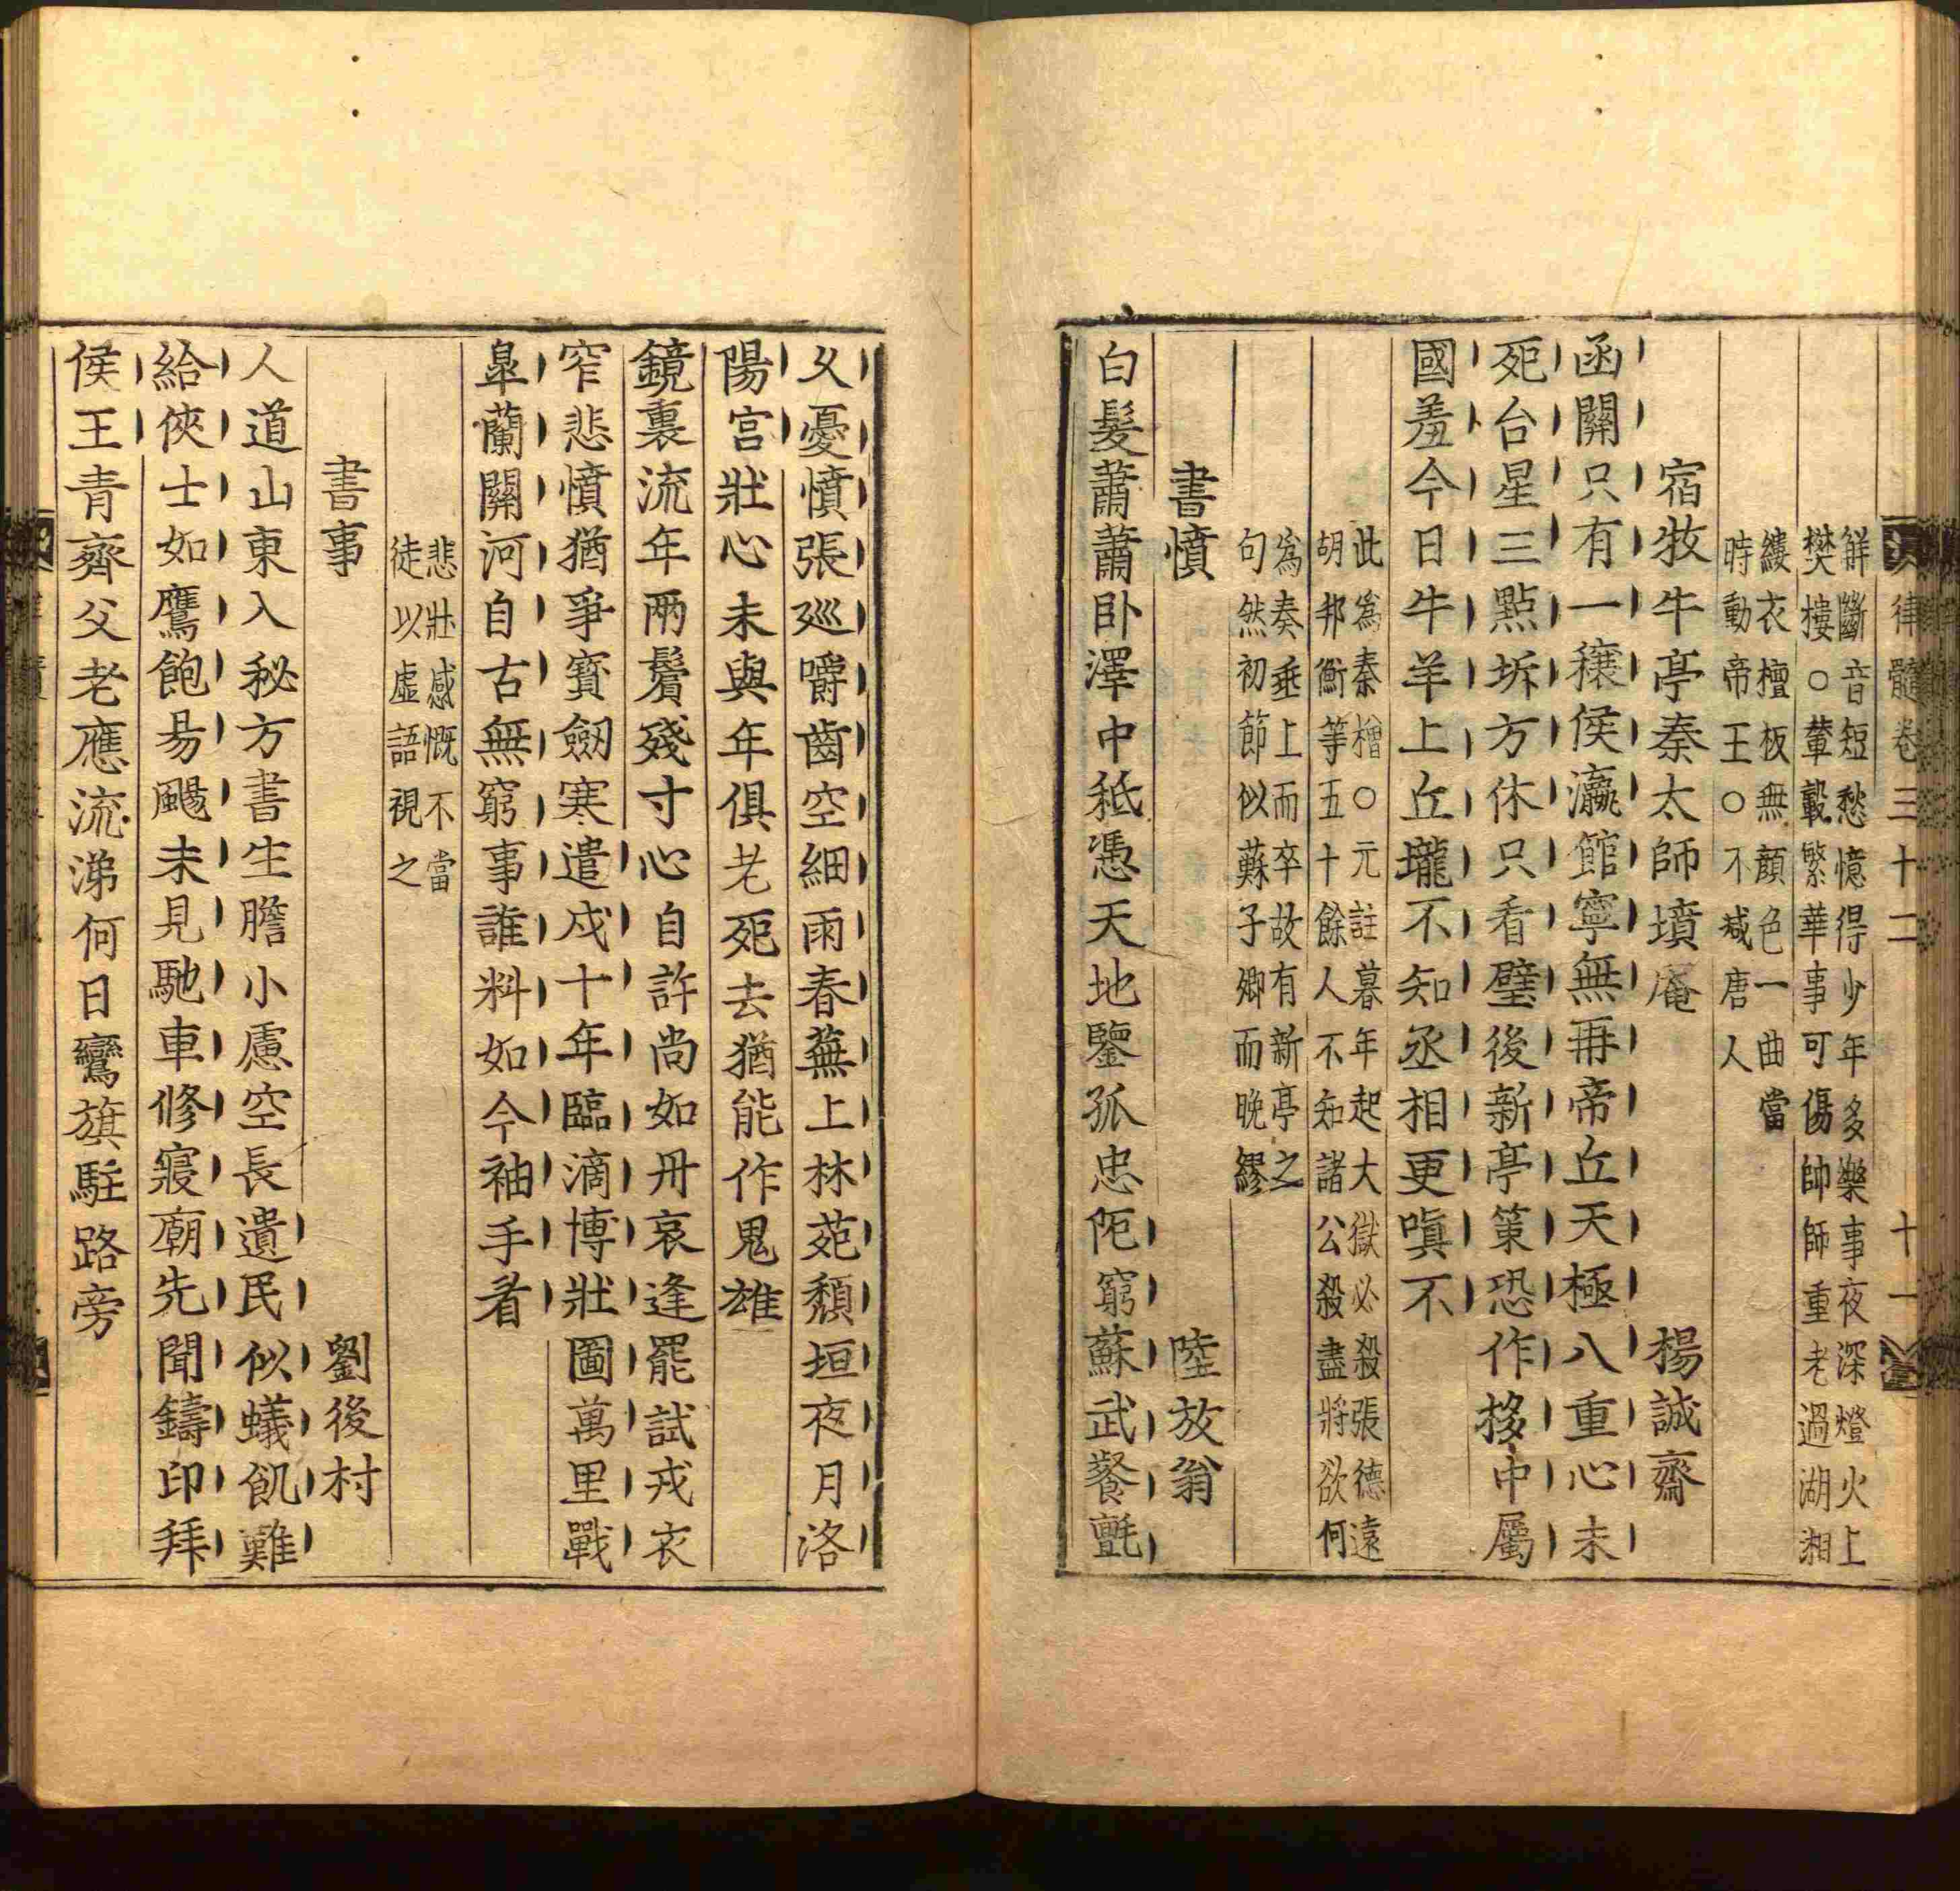 律髓卷三十二 十一
觧斷音短愁憶得少年多樂事夜深燈火上
樊摟○輦轂繁華事可傷帥師重老過湖湘
縷衣檀板無顏色一曲當
時動帝王○不減唐人
宿牧牛亭秦太師墳庵 楊誠齋
函關只有一穰侯瀛館寧無再帝丘天極八重心未
死台星三點坼方休只看璧後新亭策恐作移中屬
國羞今日牛羊上丘壠不知丞相更嗔不
此爲秦檜○元註暮年起大獄必殺張德遠
胡邦衡等五十餘人不知諸公殺盡將欲何
爲奏垂上而卒故有新亭之
句然初節似蘇子卿而晚繆
書憤 陸放翁
白髮蕭蕭卧澤中秪憑天地鑒孤忠阨窮蘇武餐氈
乆憂憤張廵嚼齒空細雨春蕪上林苑頹垣夜月洛
陽宫壯心未與年俱老死去猶能作鬼雄
鏡裏流年兩鬢殘寸心自許尚如丹哀逢罷試戎衣
窄悲憤猶爭寳劒寒遣戍十年臨滴博壯圖萬里戰
臯蘭關河自古無窮事誰料如今袖手看
悲壯感慨不當
徒以虛語視之
書事 劉後村
人道山東入秘方書生膽小慮空長遺民似蟻飢難
給俠士如鷹飽易颺未見馳車修寢廟先聞鑄印拜
侯王青齊父老應流涕何日鸞旗駐路旁